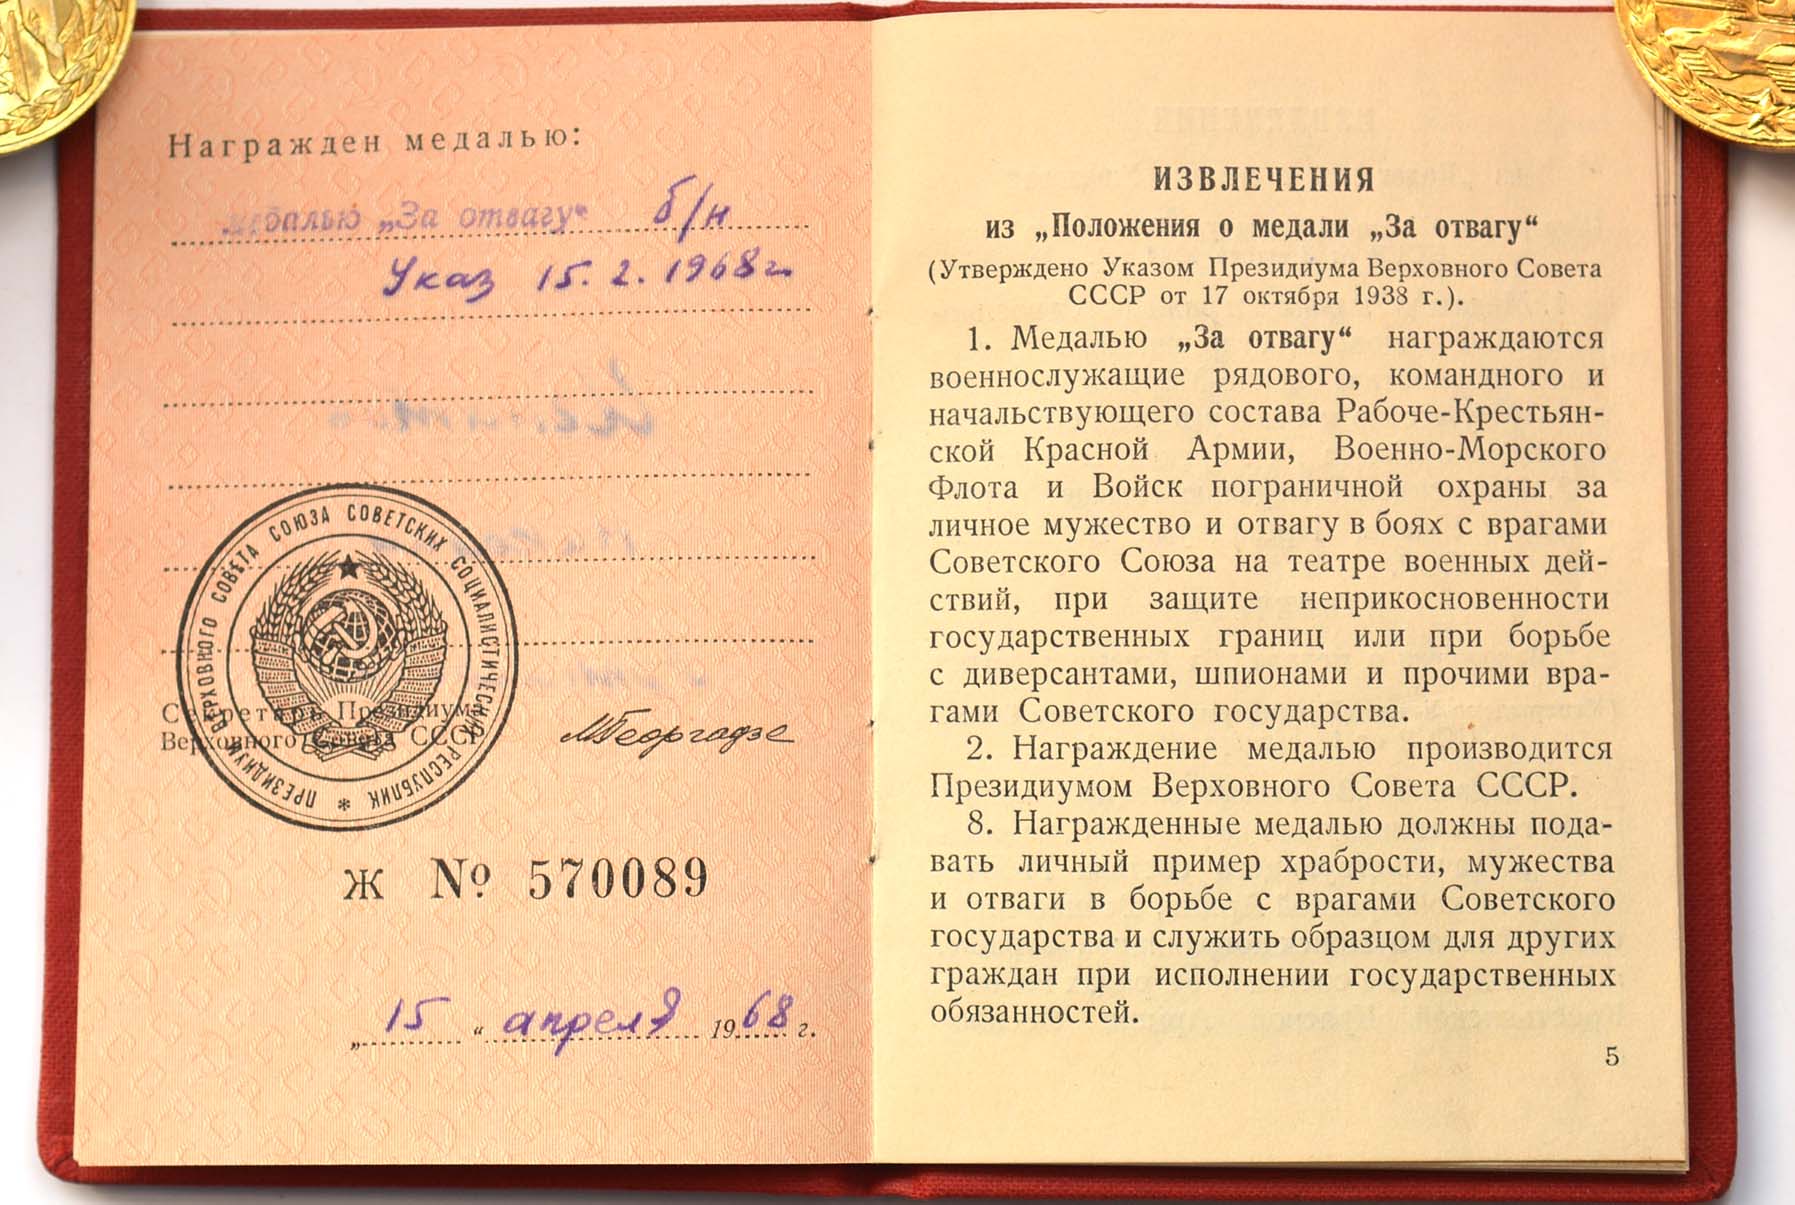 Награжден медалью:
медалью „За отвагу“ б/н
Указ 15.2.1968г.
ПРЕЗИДИУМ ВЕРХОВНОГО СОВЕТА СОЮЗА СОВЕТСКИХ СОЦИАЛИСТИЧЕСКИХ РЕСПУБЛИК *
Секретарь Президиума
Верховного Совета СССР
МГеоргадзе
Ж № 570089
„15“ апреля 1968 г.
ИЗВЛЕЧЕНИЯ
из „Положения о медали „За отвагу“
(Утверждено Указом Президиума Верховного Совета
СССР от 17 октября 1938 г.).
1. Медалью „За отвагу“ награждаются
военнослужащие рядового, командного и
начальствующего состава Рабоче-Крестьян-
ской Красной Армии, Военно-Морского
Флота и Войск пограничной охраны за
личное мужество и отвагу в боях с врагами
Советского Союза на театре военных дей-
ствий, при защите неприкосновенности
государственных границ или при борьбе
с диверсантами, шпионами и прочими вра-
гами Советского государства.
2. Награждение медалью производится
Президиумом Верховного Совета СССР.
8. Награжденные медалью должны пода-
вать личный пример храбрости, мужества
и отваги в борьбе с врагами Советского
государства и служить образцом для других
граждан при исполнении государственных
обязанностей.
5